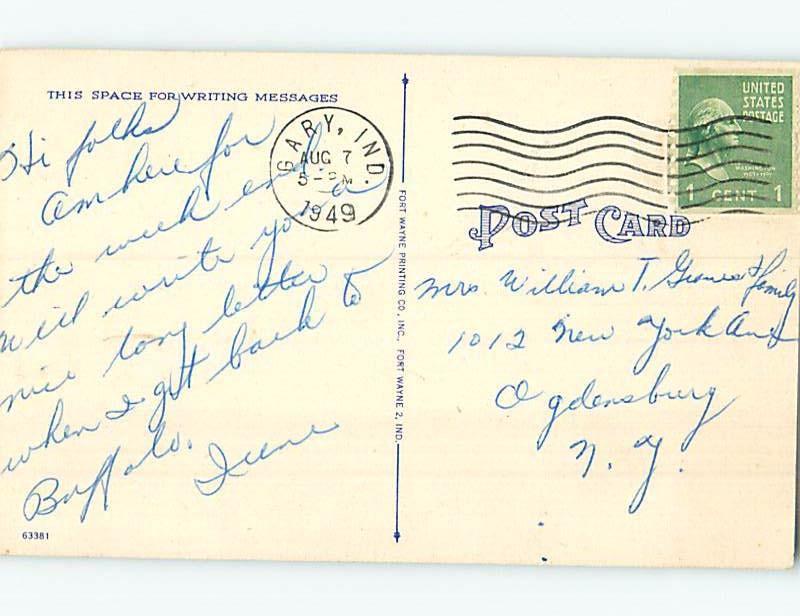 THIS SPACE FOR WRITING MESSAGES
Hi folks
Am here for
the week end
will write you a
nice long letter
when I get back to
Buffalo.
Irene
63381
GARY, IND.
AUG 7
5-PM
1949
FORT WAYNE PRINTING CO., INC., FORT WAYNE 2, IND.
UNITED
STATES
POSTAGE
WASHINGTON
1 CENT 1
POST CARD
Mrs. William T. Graves & family
1012 New York Ave
Ogdensburg
N. Y.